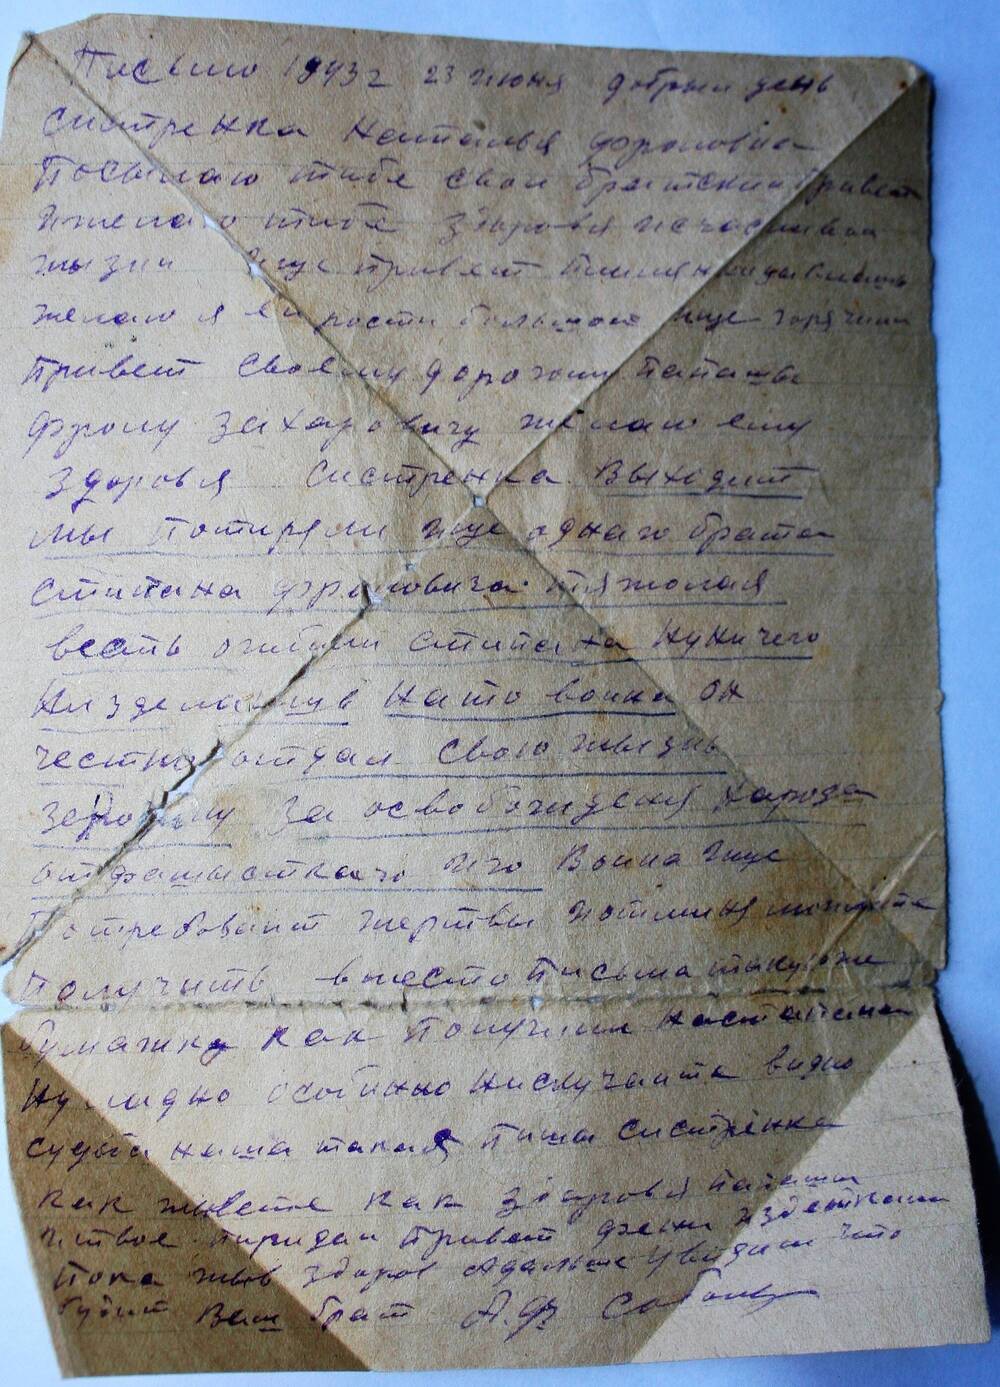 Письмо 1943 г 23 июня добрый день
Систренка Наталья фроловна
Посылаю тибе свой братский привет
Ижелаю тибе здоровя исчасливай
жызни Ище привет
желаю я ей рости большою ище горячий
привет Своему дорогому папаши
фролу Захаровичу жилаю ему
здоровя Систренка Выходит
мы потиряли ище однаго брата
Стипана фроловича тяжолая
весть огибили Стипана Нуничего
Низделаиш Нато воина он
честно отдал свою жызнь
зародину За освобожидения народа
отфашысткаго Иго Воина Ище
Потребоваит жертвы
Получить вместо письма такую же
бумажку как получили настипана
Ну ладно особинно нискучаита видно
судьба наша такая Пишы систренка
как жывете как здоровя папашы
Итвое пиридай привет фени издетками
Пока жыв здоров адальше увидим что
будит Ваш брат А.ф.